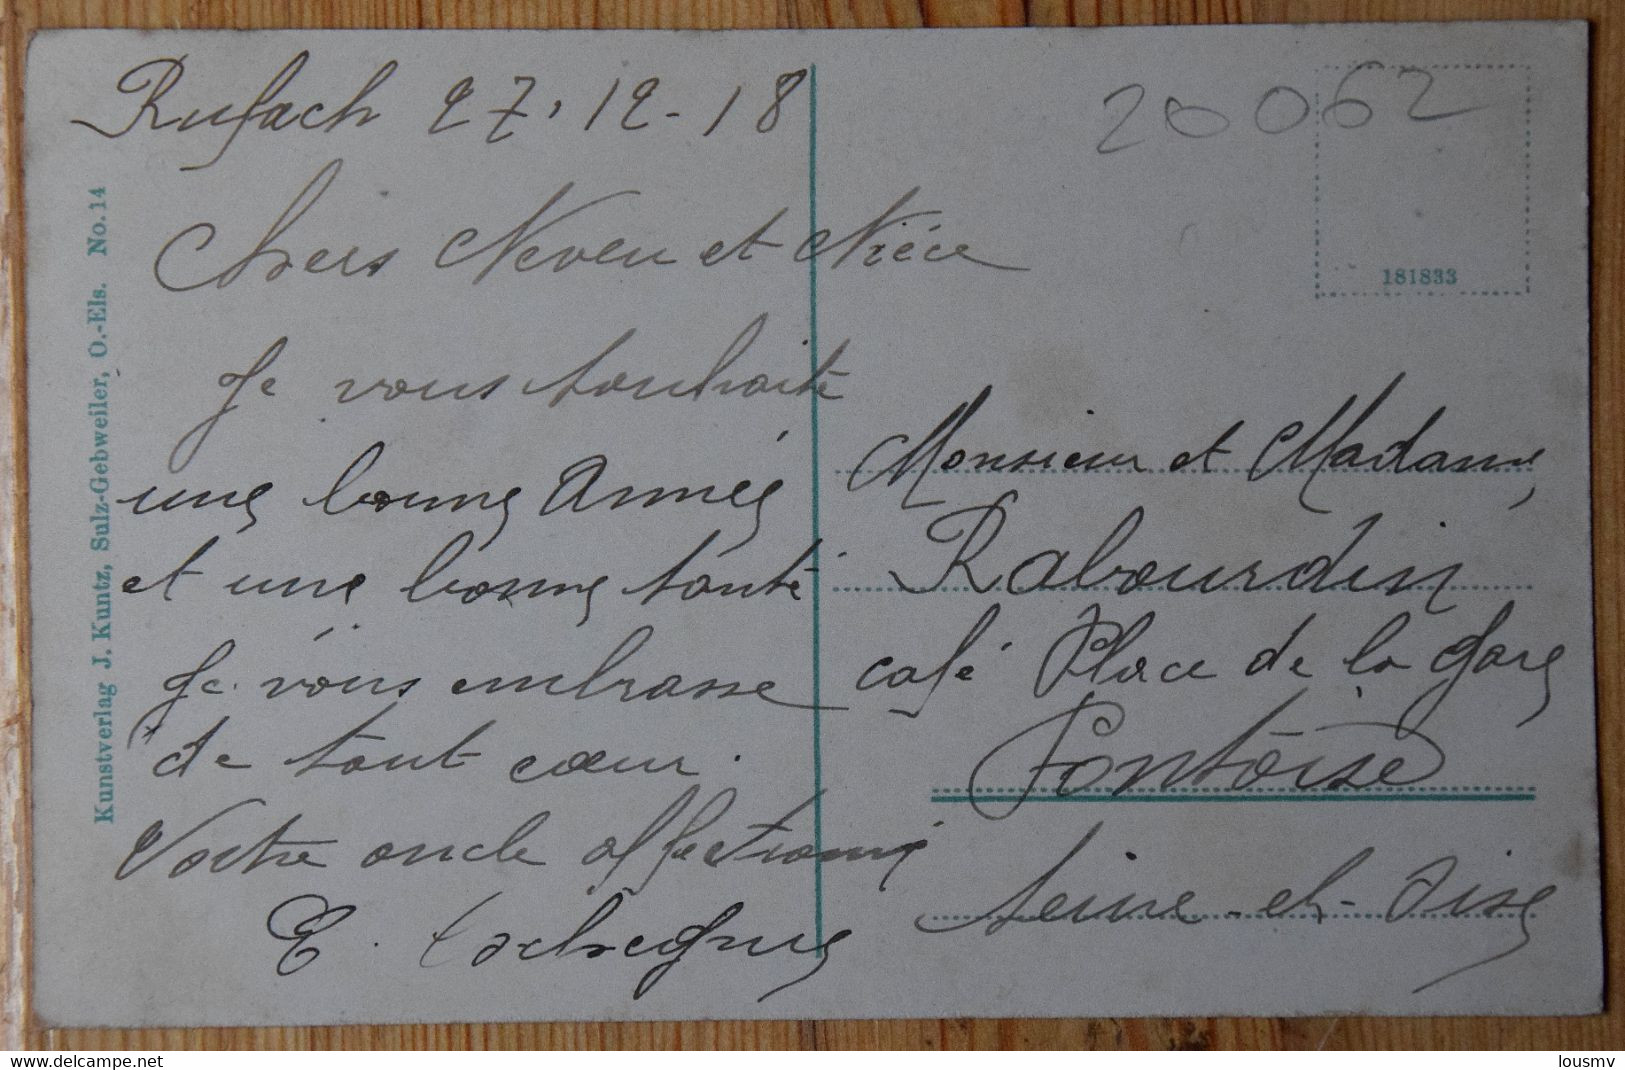 Rufach 27.12-18
Chers Neveu et Nièce
Je vous souhaite
une bonne Année
et une bonne santé
Je vous embrasse
de tout cœur.
Votre oncle affectionné
E.
20062
181833
Monsieur et Madame
Rabourdin
café Place de la Gare
Pontoise
Seine-et-Oise
Kunstverlag J. Kuntz, Sulz-Gebweiler, O.-Els. No. 14
https://www.delcampe.net
lousmv